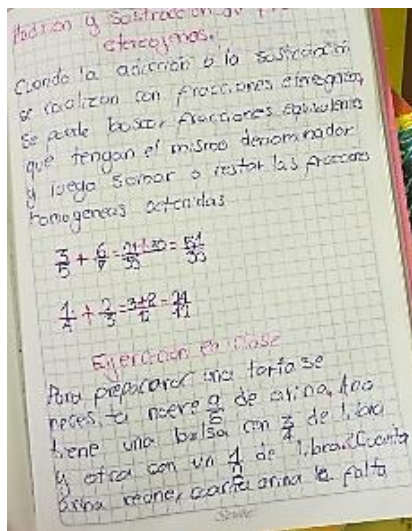 Adicion y sostraccion de
etereojenas.
Cuando la adiccion o la sostraccion
se realizan con fracciones eteregenas,
se puede buscar fracciones equivalentes
que tengan el mismo denominador
y luego somar o restar las fracciones
homogeneas obtenidas
3/5 + 6/7 = 21+30/35 = 51/35
1/4 + 2/3 = 3+8/12 =
Ejercicion en clase
Para preparar una torta se
neces, ta nueve 9/5 de arina. Ana
tiene una bolsa con 3/4 de libra
y otra con un 1/ de libra. Cuanta
arina reone, cuanta arina le falta